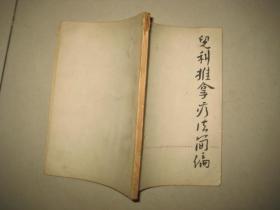 儿科推拿疗法简编